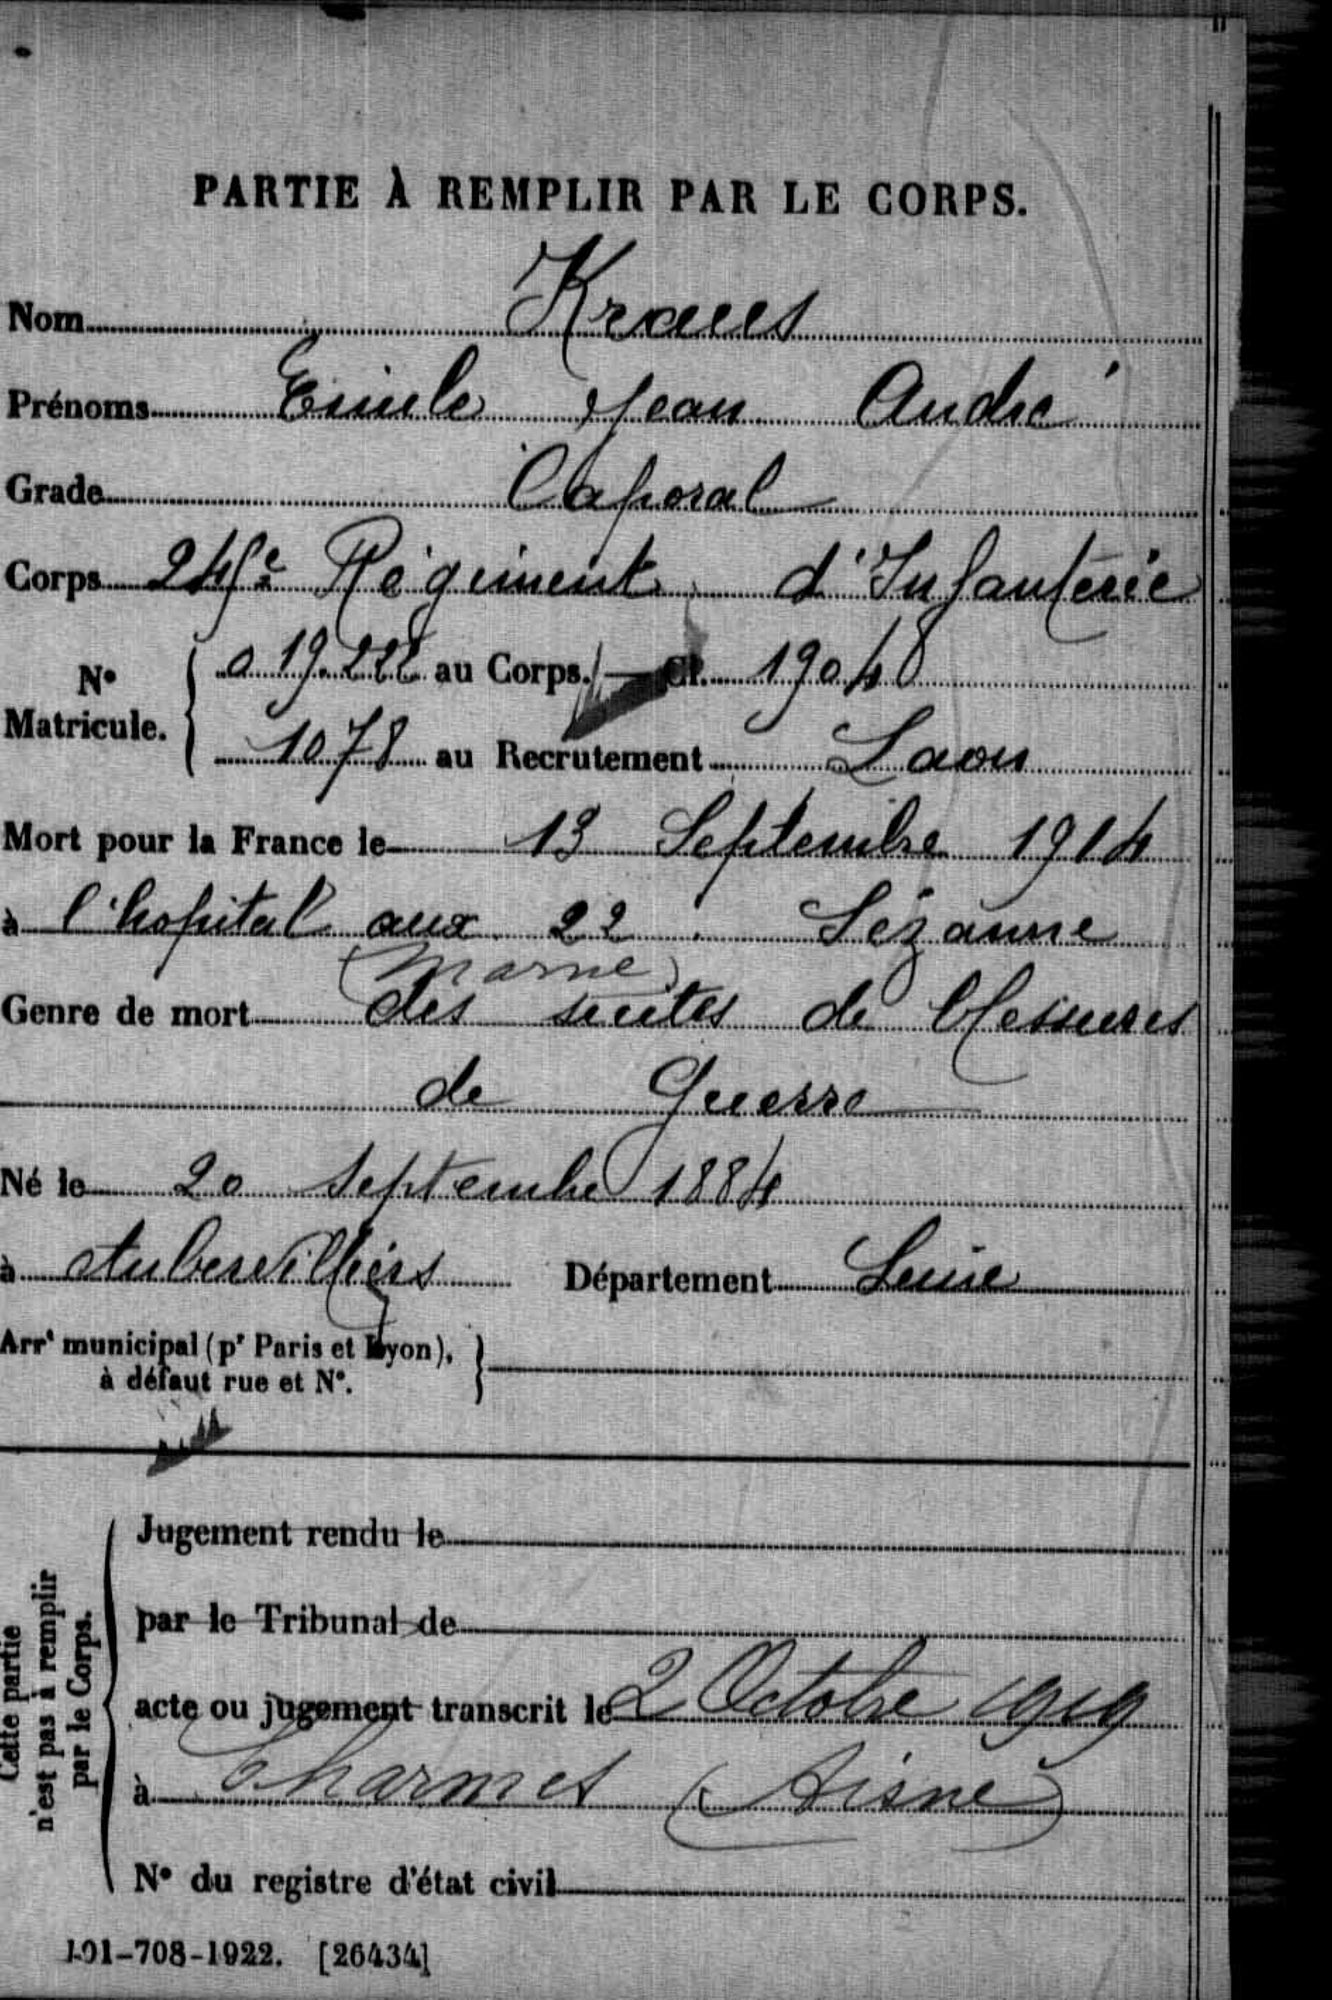 PARTIE À REMPLIR PAR LE CORPS.
Nom Kraus
Prénoms Emile Jean André
Grade Caporal
Corps 245e Régiment d'Infanterie
No Matricule. { 019.222 au Corps. — Cl. 1904
1078 au Recrutement Laon
Mort pour la France le 13 Septembre 1914
à l'hopital aux 22. Sézanne
(Marne)
Genre de mort des suites de blessures
de Guerre
Né le 20 Septembre 1884
à Aubervilliers Département Seine
Arrt municipal (pr Paris et Lyon), }
à défaut rue et No.
Cette partie
n'est pas à remplir
par le Corps.
Jugement rendu le
par le Tribunal de
acte ou jugement transcrit le 2 Octobre 1919
à Charmes (Aisne)
No du registre d'état civil
101-708-1922. [26434]